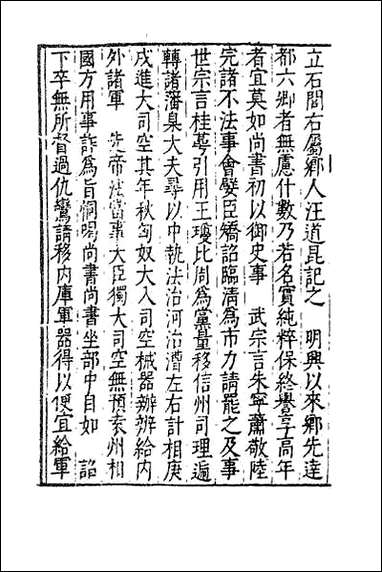 立石閭右屬鄉人汪道昆記之　明興以來鄉先達
都六卿者無慮什數乃若名實純粹保終譽享高年
者宜莫如尚書初以御史事　武宗言朱寧蕭敬陸
完諸不法事會嬖臣矯詔臨清為市力請罷之及事
世宗言桂萼引用王瓊比周為黨量移信州司理遍
轉諸藩臬大夫尋以中執法治河治漕左右計相庚
戌進大司空其年秋匈奴大入司空械器辦辨給内
外諸軍　先帝法當罪大臣獨大司空無預袁州相
國方用事詐為旨恫喝尚書尚書坐部中目如　詔
下卒無所督過仇鸞請移内庫軍器得以便宜給軍